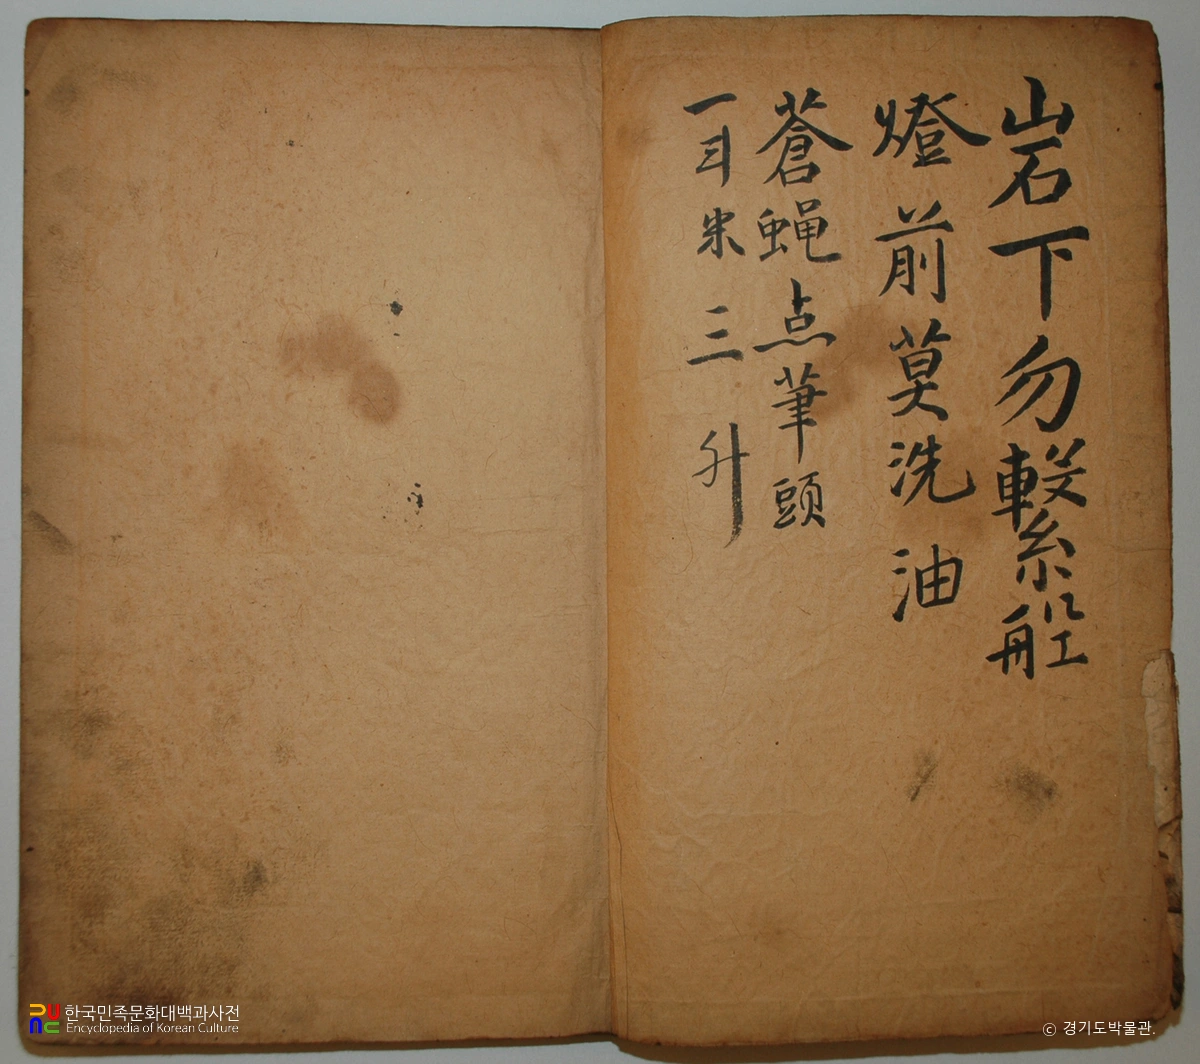 岩下勿繫船
燈前莫洗油
蒼蝿点筆頭
一斗米三升
한국민족문화대백과사전
Encyclopedia of Korean Culture
© 경기도박물관.